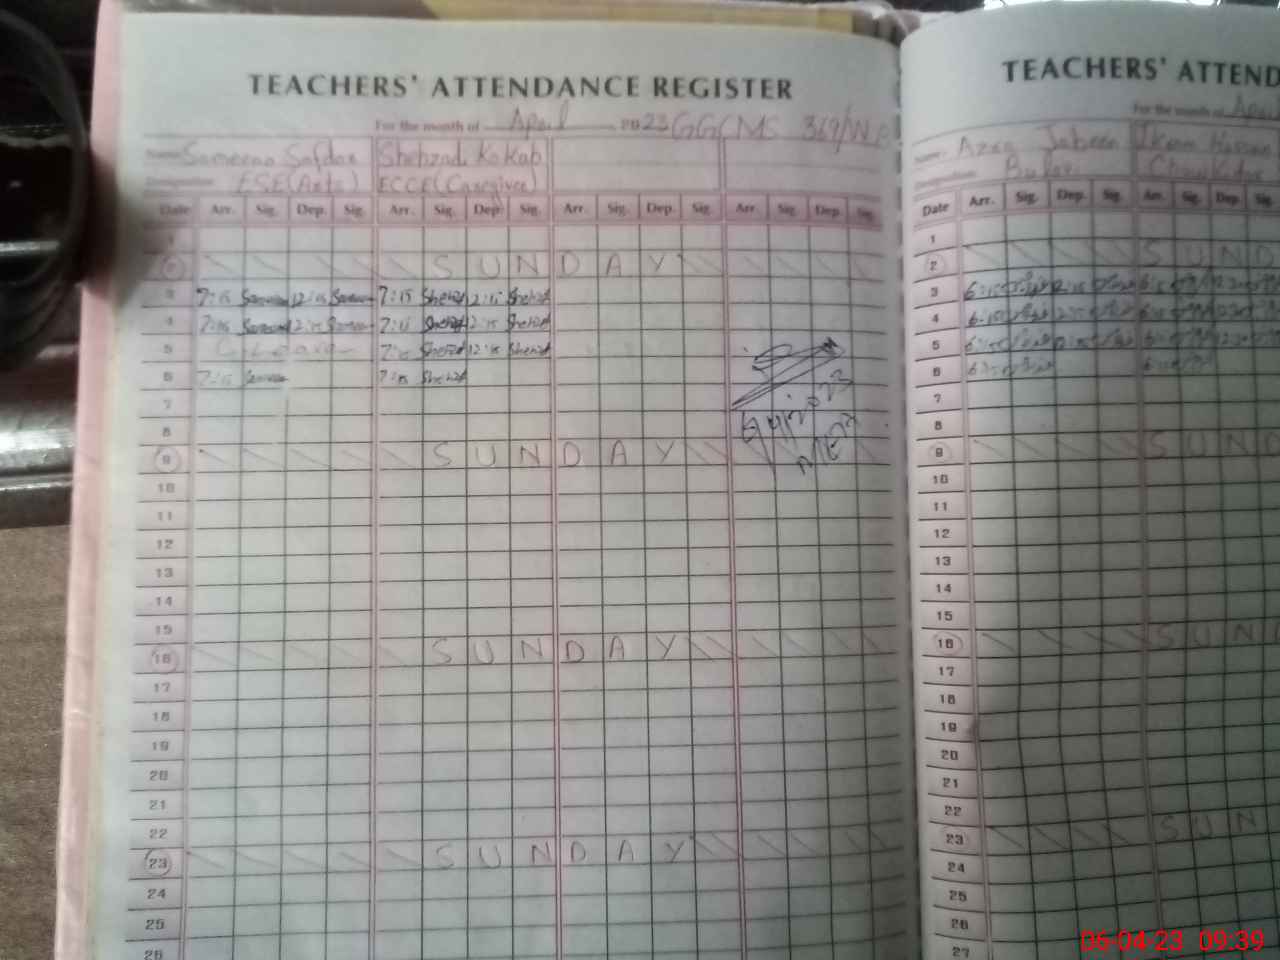 TEACHERS' ATTENDANCE REGISTER
For the month of April 2023 GGCMS 369/W.B
Name: Sameena Safdar Shehzadi Kokab
Designation: ESE(Arts) ECCE(Caregiver)
Date Arr. Sig. Dep. Sig. Arr. Sig. Dep. Sig. Arr. Sig. Dep. Sig. Arr. Sig. Dep. Sig.
1
2 SUNDAY
3 7:15 Sameena 12:15 Sameena 7:15 Shehzd 12:15 Shehzd
4 7:15 Sameena 12:15 Sameena 7:15 Shehzd 12:15 Shehzd
5 C. Leave 7:15 Shehzd 12:15 Shehzd
6 7:15 Sameena 7:15 Shehzd
7
8
6/4/2023
MEA
9 SUNDAY
10
11
12
13
14
15
16 SUNDAY
17
18
19
20
21
22
23 SUNDAY
24
25
26
TEACHERS' ATTEND
For the month of April
Name: Azra Jabeen Ikram Hussain
Designation: Chowkidar
Date Arr. Sig. Dep. Sig. Arr. Sig. Dep. Sig.
1
2 SUND
3 6:15
4 6:15
5 6:15
6 6:15
7
8
9 SUND
10
11
12
13
14
15
16 SUN
17
18
19
20
21
22
23 SUN
24
25
26
27
06-04-23 09:39